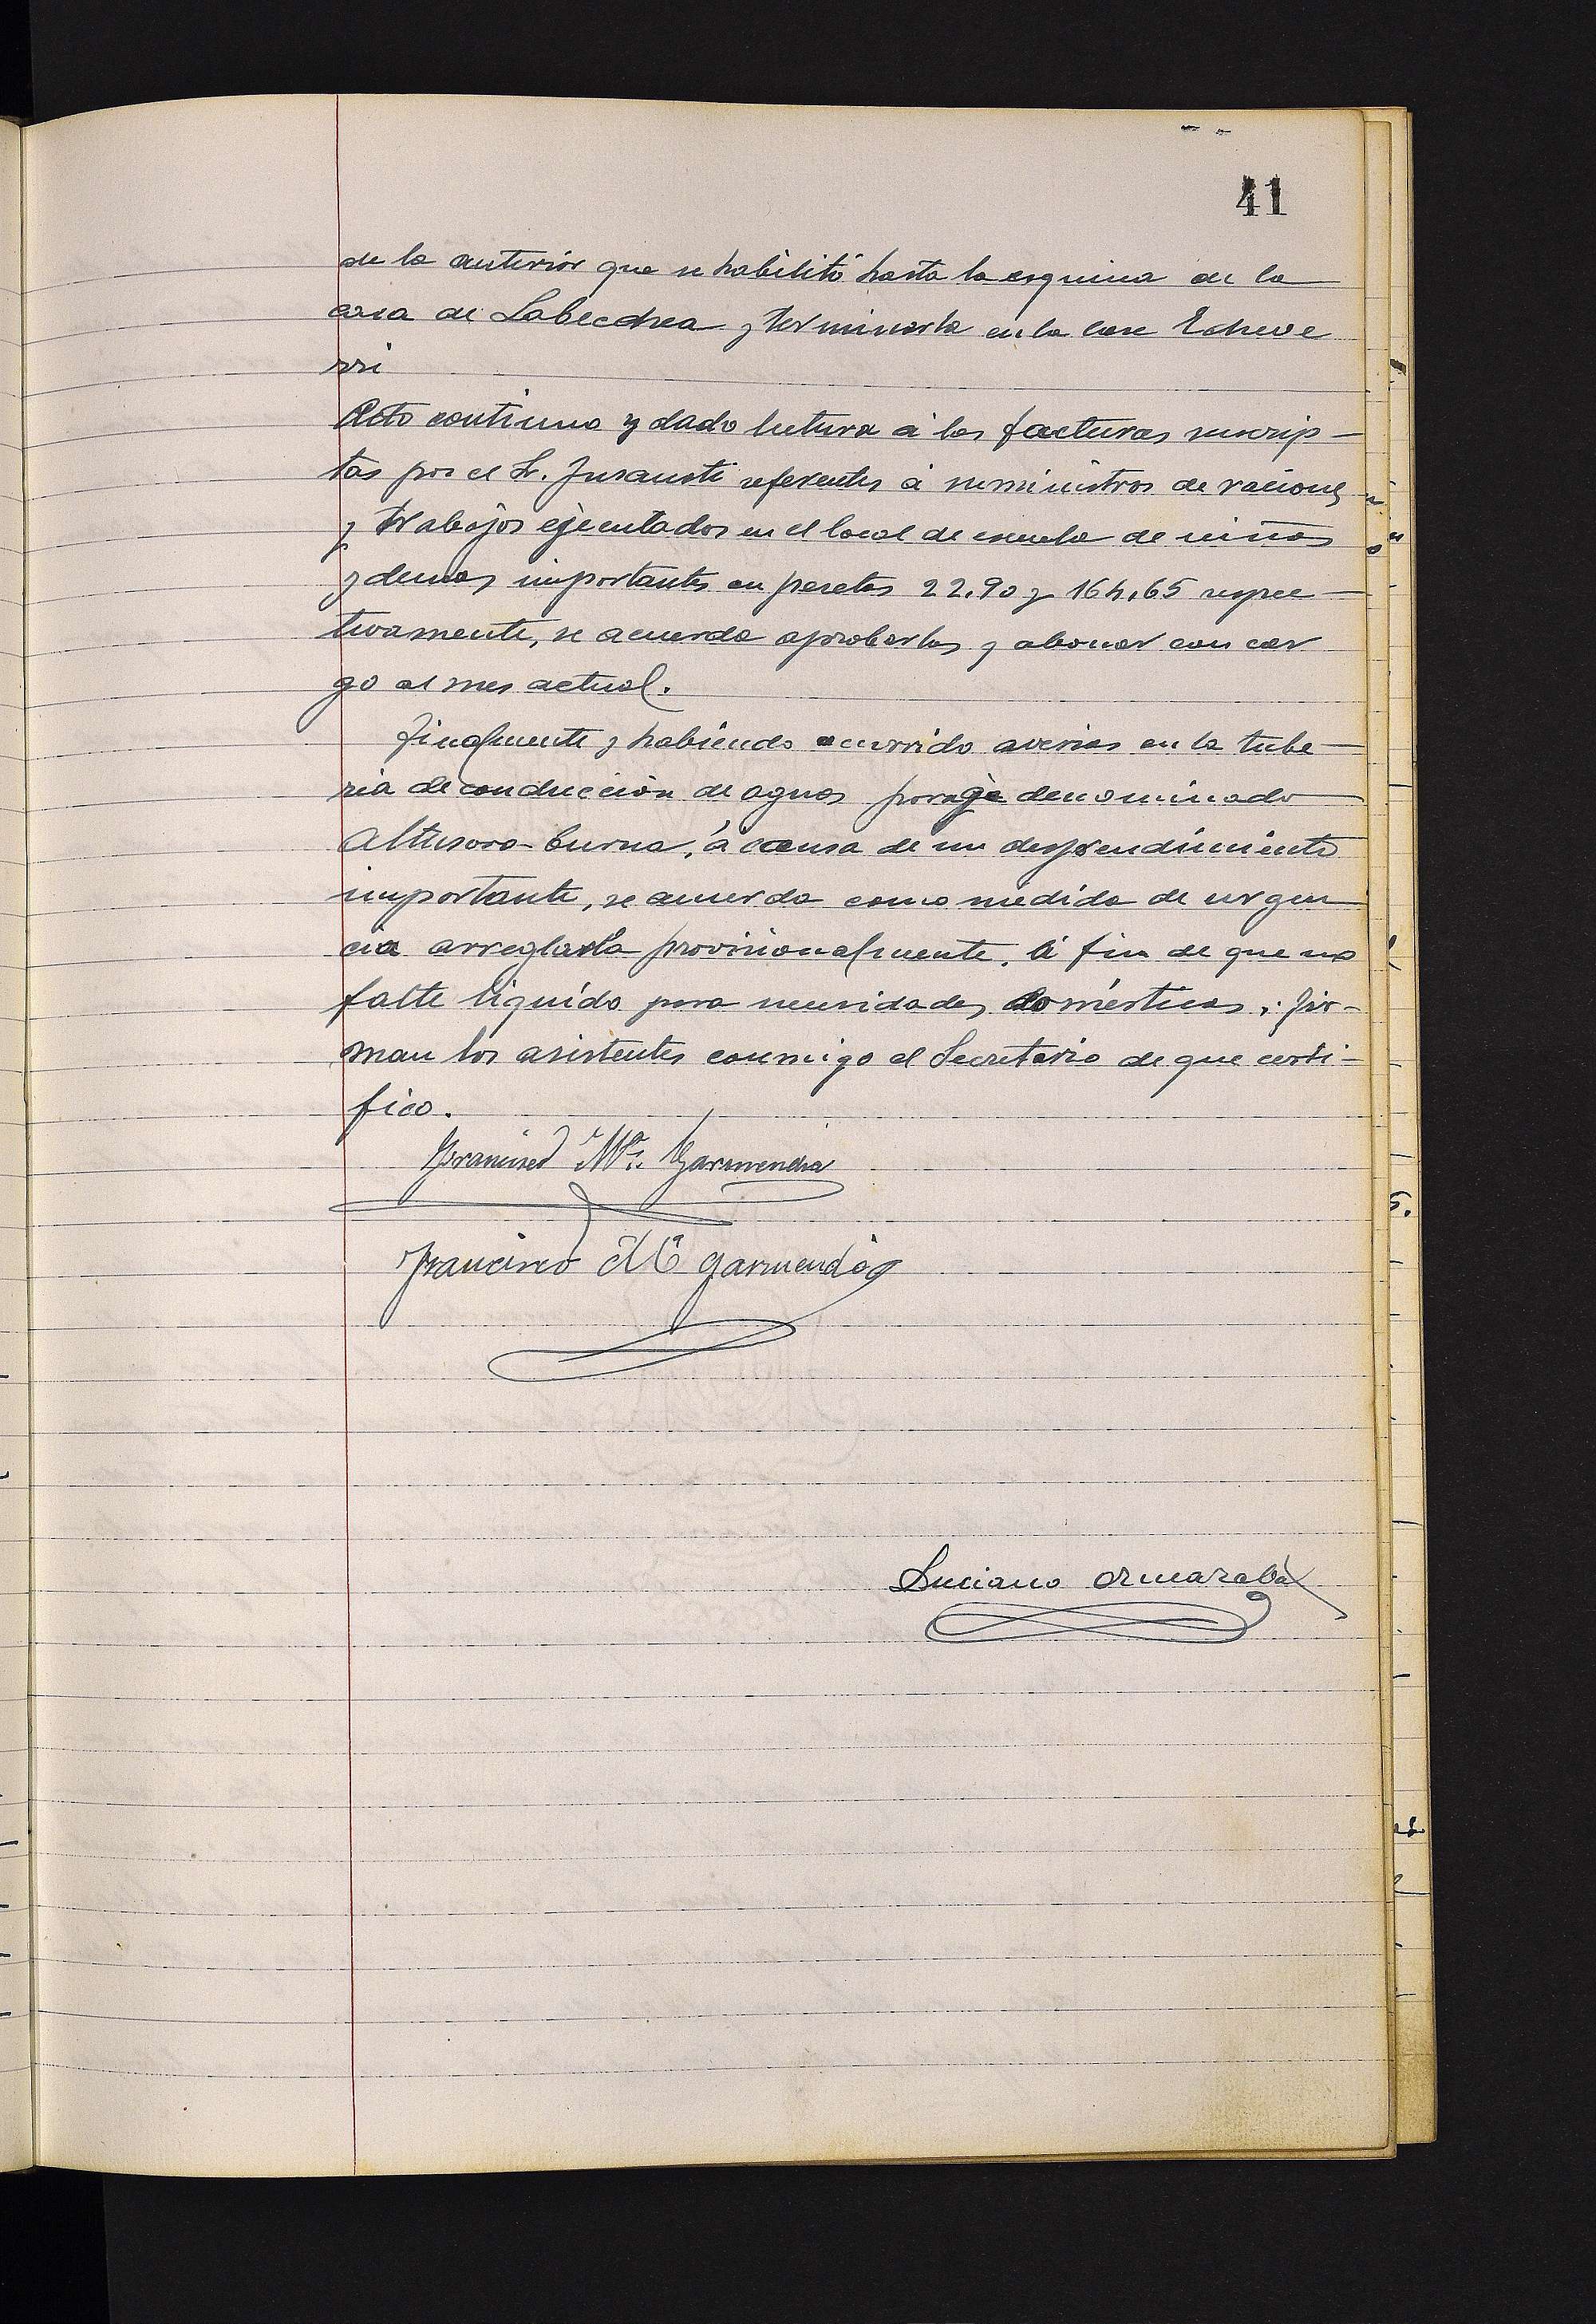 41
de la anterior que se habilitó hasta la esquina de la
casa de Labecchea y terminarla en la casa Echeve
rri
Acto continuo y dado lectura á las facturas suscrip-
tas por el Sr. Insausti referentes á suministros de raciones
y trabajos ejecutados en el local de escuela de niñas
y demas importantes en pesetas 22,90 y 164,65 respec-
tivamente, se acuerda aprobarlas y abonar con car
go al mes actual.
Finalmente y habiendo ocurrido averias en la tube-
ria de conducción de aguas poraje denominado
Altusoro-burua, á causa de un desprendimiento
importante, se acuerda como medida de urgen
cia arreglarla provisionalmente, á fin de que no
falte liquido para necesidades domésticas; fir-
man los asistentes conmigo el Secretario de que certi-
fico.
Francisco Mª. Garmendia
Francisco Mª Garmendia
Luciano Ormazabal